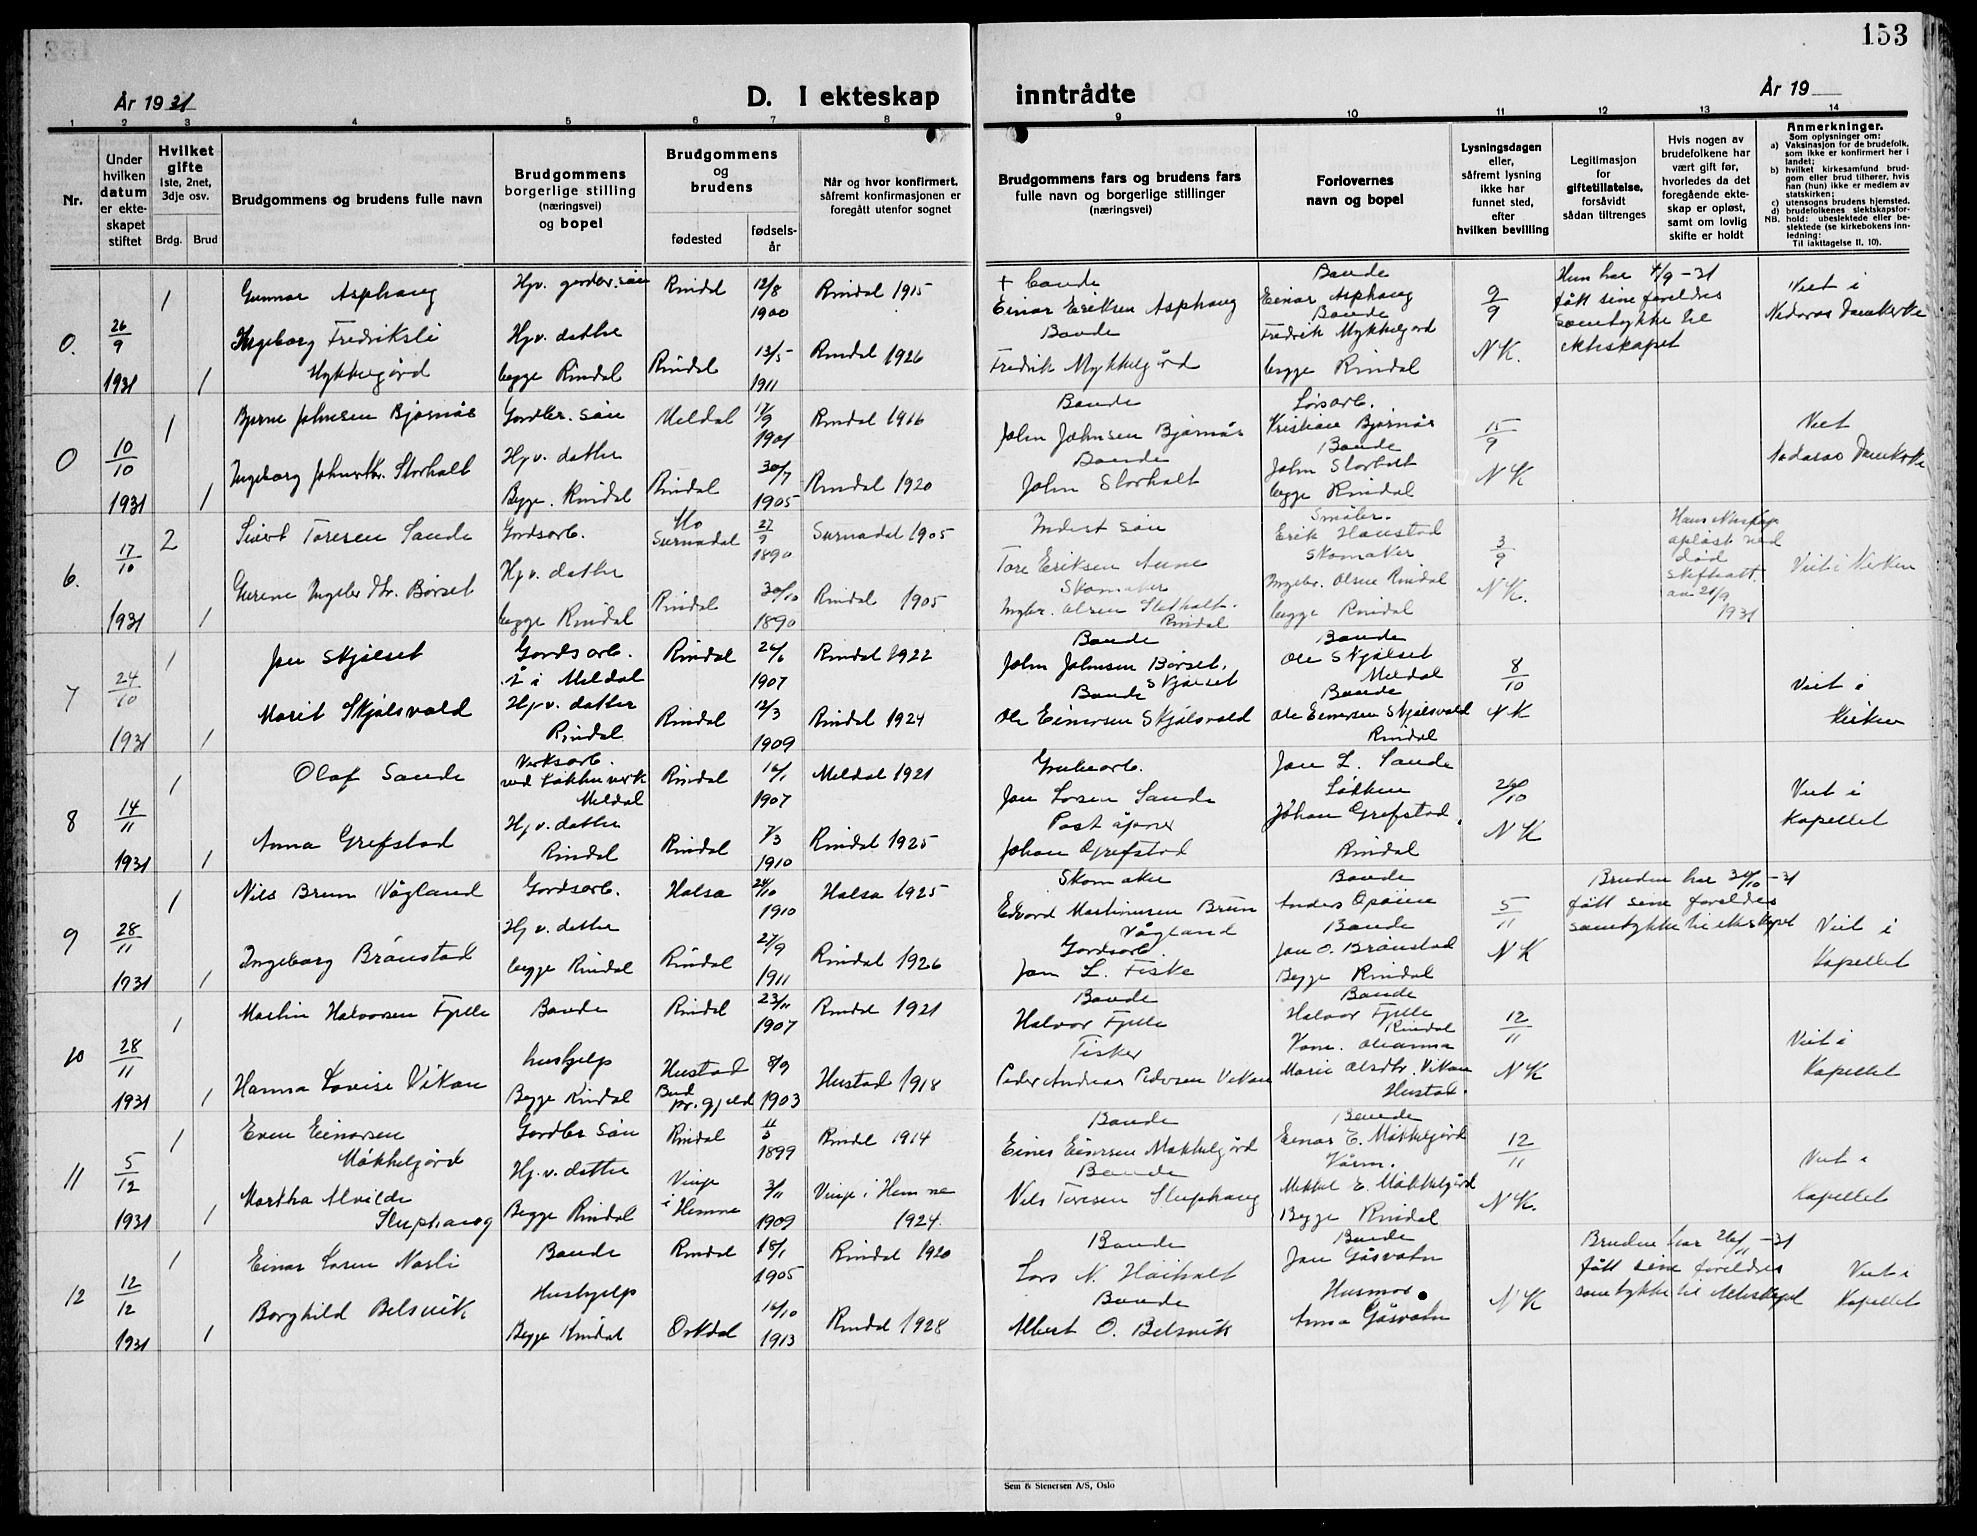 153
År 1931
D. I ekteskap inntrådte
År 19
1 2 3 4 5 6 7 8 9 10 11 12 13 14
Nr.
Under hvilken datum er ekteskapet stiftet
Hvilket gifte
1ste, 2net, 3dje osv.
Brdg. Brud
Brudgommens og brudens fulle navn
Brudgommens borgerlige stilling (næringsvei) og bopel
Brudgommens og brudens
fødested
fødselsår
Når og hvor konfirmert, såfremt konfirmasjonen er foregått utenfor sognet
Brudgommens fars og brudens fars fulle navn og borgerlige stillinger (næringsvei)
Forlovernes navn og bopel
Lysningsdagen eller, såfremt lysning ikke har funnet sted, efter hvilken bevilling
Legitimasjon for giftetillatelse, forsåvidt sådan tiltrenges
Hvis nogen av brudefolkene har vært gift før, hvorledes da det foregående ekteskap er opløst, samt om lovlig skifte er holdt
Anmerkninger.
Som oplysninger om:
a) Vaksinasjon for de brudefolk, som ikke er konfirmert her i landet;
b) hvilket kirkesamfund brudgom eller brud tilhører, hvis han (hun) ikke er medlem av statskirken;
c) utensogns brudens hjemsted.
d) brudefolkenes slektskapsforhold: ubeslektede eller beslektede (se kirkebokens innledning:
NB. Til iakttagelse II, 10).
0. 26/9 1931 1 Gunnar Asphaug Hjv. gårdbr. sön Rindal 12/8 1900 Rindal 1915 + Bonde Einar Eriksen Asphaug Bonde Einar Asphaug 9/9 Hun har 4/9-31 fått sine foreldres samtykke til Viet i Nidaros Domkirke
1 Ingeborg Fredriksli Mykkelgård Hjv. datter begge Rindal Rindal 13/5 1911 Rindal 1926 Bonde Fredrik Mykkelgård Bonde Fredrik Mykkelgård begge Rindal NK. ekteskapet
0 10/10 1931 1 Bjarne Johnsen Bjørnås Gårdbr. sön Meldal 17/9 1901 Rindal 1916 Bonde John Johnsen Bjørnås Kristian Bjørnås 15/9 Viet Nidaros Domkirke
1 Ingeborg Johnsdtr. Storholt Hjv. datter Begge. Rindal Rindal 30/7 1905 Rindal 1920 Bonde John Storholt Bonde John Storholt begge Rindal NK
6. 17/10 1931 2 Sivert Toresen Sande Gårdsarb. Mo Surnadal 27/9 1890 Surnadal 1905 Inderst sön Tore Eriksen Aune Småbr. Erik Haustad 3/9 Hans Ekteskap opløst ved død Skifteatt. av 21/9 1931 Viet i Kirken
1 Gurine Ingebr.dtr. Børset Hjv. datter begge Rindal Rindal 30/10 1890 Rindal 1905 Skomaker Ingbr. Olsen Rindal Skomaker Ingebr. Olsen Rindal begge Rindal NK.
7 24/10 1931 1 Jon Skjølset Gårdsarb. i Meldal Rindal 26/6 1907 Rindal 1922 Bonde John Johnsen Børset. Skjølset Bonde Ole Skjølset Meldal 8/10 Viet i Kirken
1 Marit Skjølsvold Hjv. datter Rindal Rindal 12/3 1909 Rindal 1924 Bonde Ole Einarsen Skjølsvold Bonde Ole Einarsen Skjølsvold Rindal NK
8 14/11 1931 1 Olaf Sande Verksarb. ved Løkken verk Meldal Rindal 16/1 1907 Meldal 1921 Grubearb. Jon Larsen Sande Jon L. Sande Løkken 26/10 Viet i Kapellet
1 Anna Grefstad Hjv. datter Rindal Rindal 7/3 1910 Rindal 1925 Poståpner Johan Grefstad Johan Grefstad, Rindal NK
9 28/11 1931 1 Nils Brun Vågland Gårdsarb. Halsa 24/10 1910 Halsa 1925 Skomaker Edvard Martinusen Brun Vågland Bonde Anders 5/11 Bruden har 30/10-31 fått sine foreldres samtykke til ekteskapet Viet i Kapellet
1 Ingeborg Brønstad Hjv. datter begge Rindal Rindal 27/9 1911 Rindal 1926 Gårdsarb. Jon L. Fiske Bonde Jon O. Brønstad Begge Rindal NK
10 28/11 1931 1 Martin Halvorsen Fjelle Bonde Rindal 23/11 1907 Rindal 1921 Bonde Halvor Fjelle Bonde Halvor Fjelle Rindal 12/11 Viet i Kapellet
1 Hanna Lovise Vikan hushjelp Begge Rindal Hustad Bud pr.gjeld 8/9 1903 Hustad 1918 Fisker Peder Andreas Pedersen Vikan Marie Olsdtr. Vikan Hustad. NK
11 5/12 1931 1 Even Einarsen Møkkelgård Gårdbr sön Rindal 1899 Rindal 1914 Bonde Einar Einarsen Møkkelgård Bonde Einar E. Møkkelgård 12/11 Viet i Kapellet
1 Martha Alvilde Sluphaug Hj.v. datter Begge Rindal Vinje i Hemne 3/11 1909 Vinje i Hemne 1924. Bonde Nils Toresen Sluphaug Mikkel E. Møkkelgård Begge Rindal NK.
12 12/12 1931 1 Einar Larsen Nasli Bonde Rindal 18/1 1905 Rindal 1920 Bonde Lars N. Høiholt Bonde Jon Gåsvatn Bruden har 26/11-31 fått sine foreldres samtykke til Ekteskapet Viet i Kapellet
1 Borghild Belsvik Hushjelp Begge Rindal Orkdal 16/10 1913 Rindal 1928 Bonde Albert O. Belsvik Husmor Anna Gåsvatn NK
Sem & Stenersen A/S, Oslo